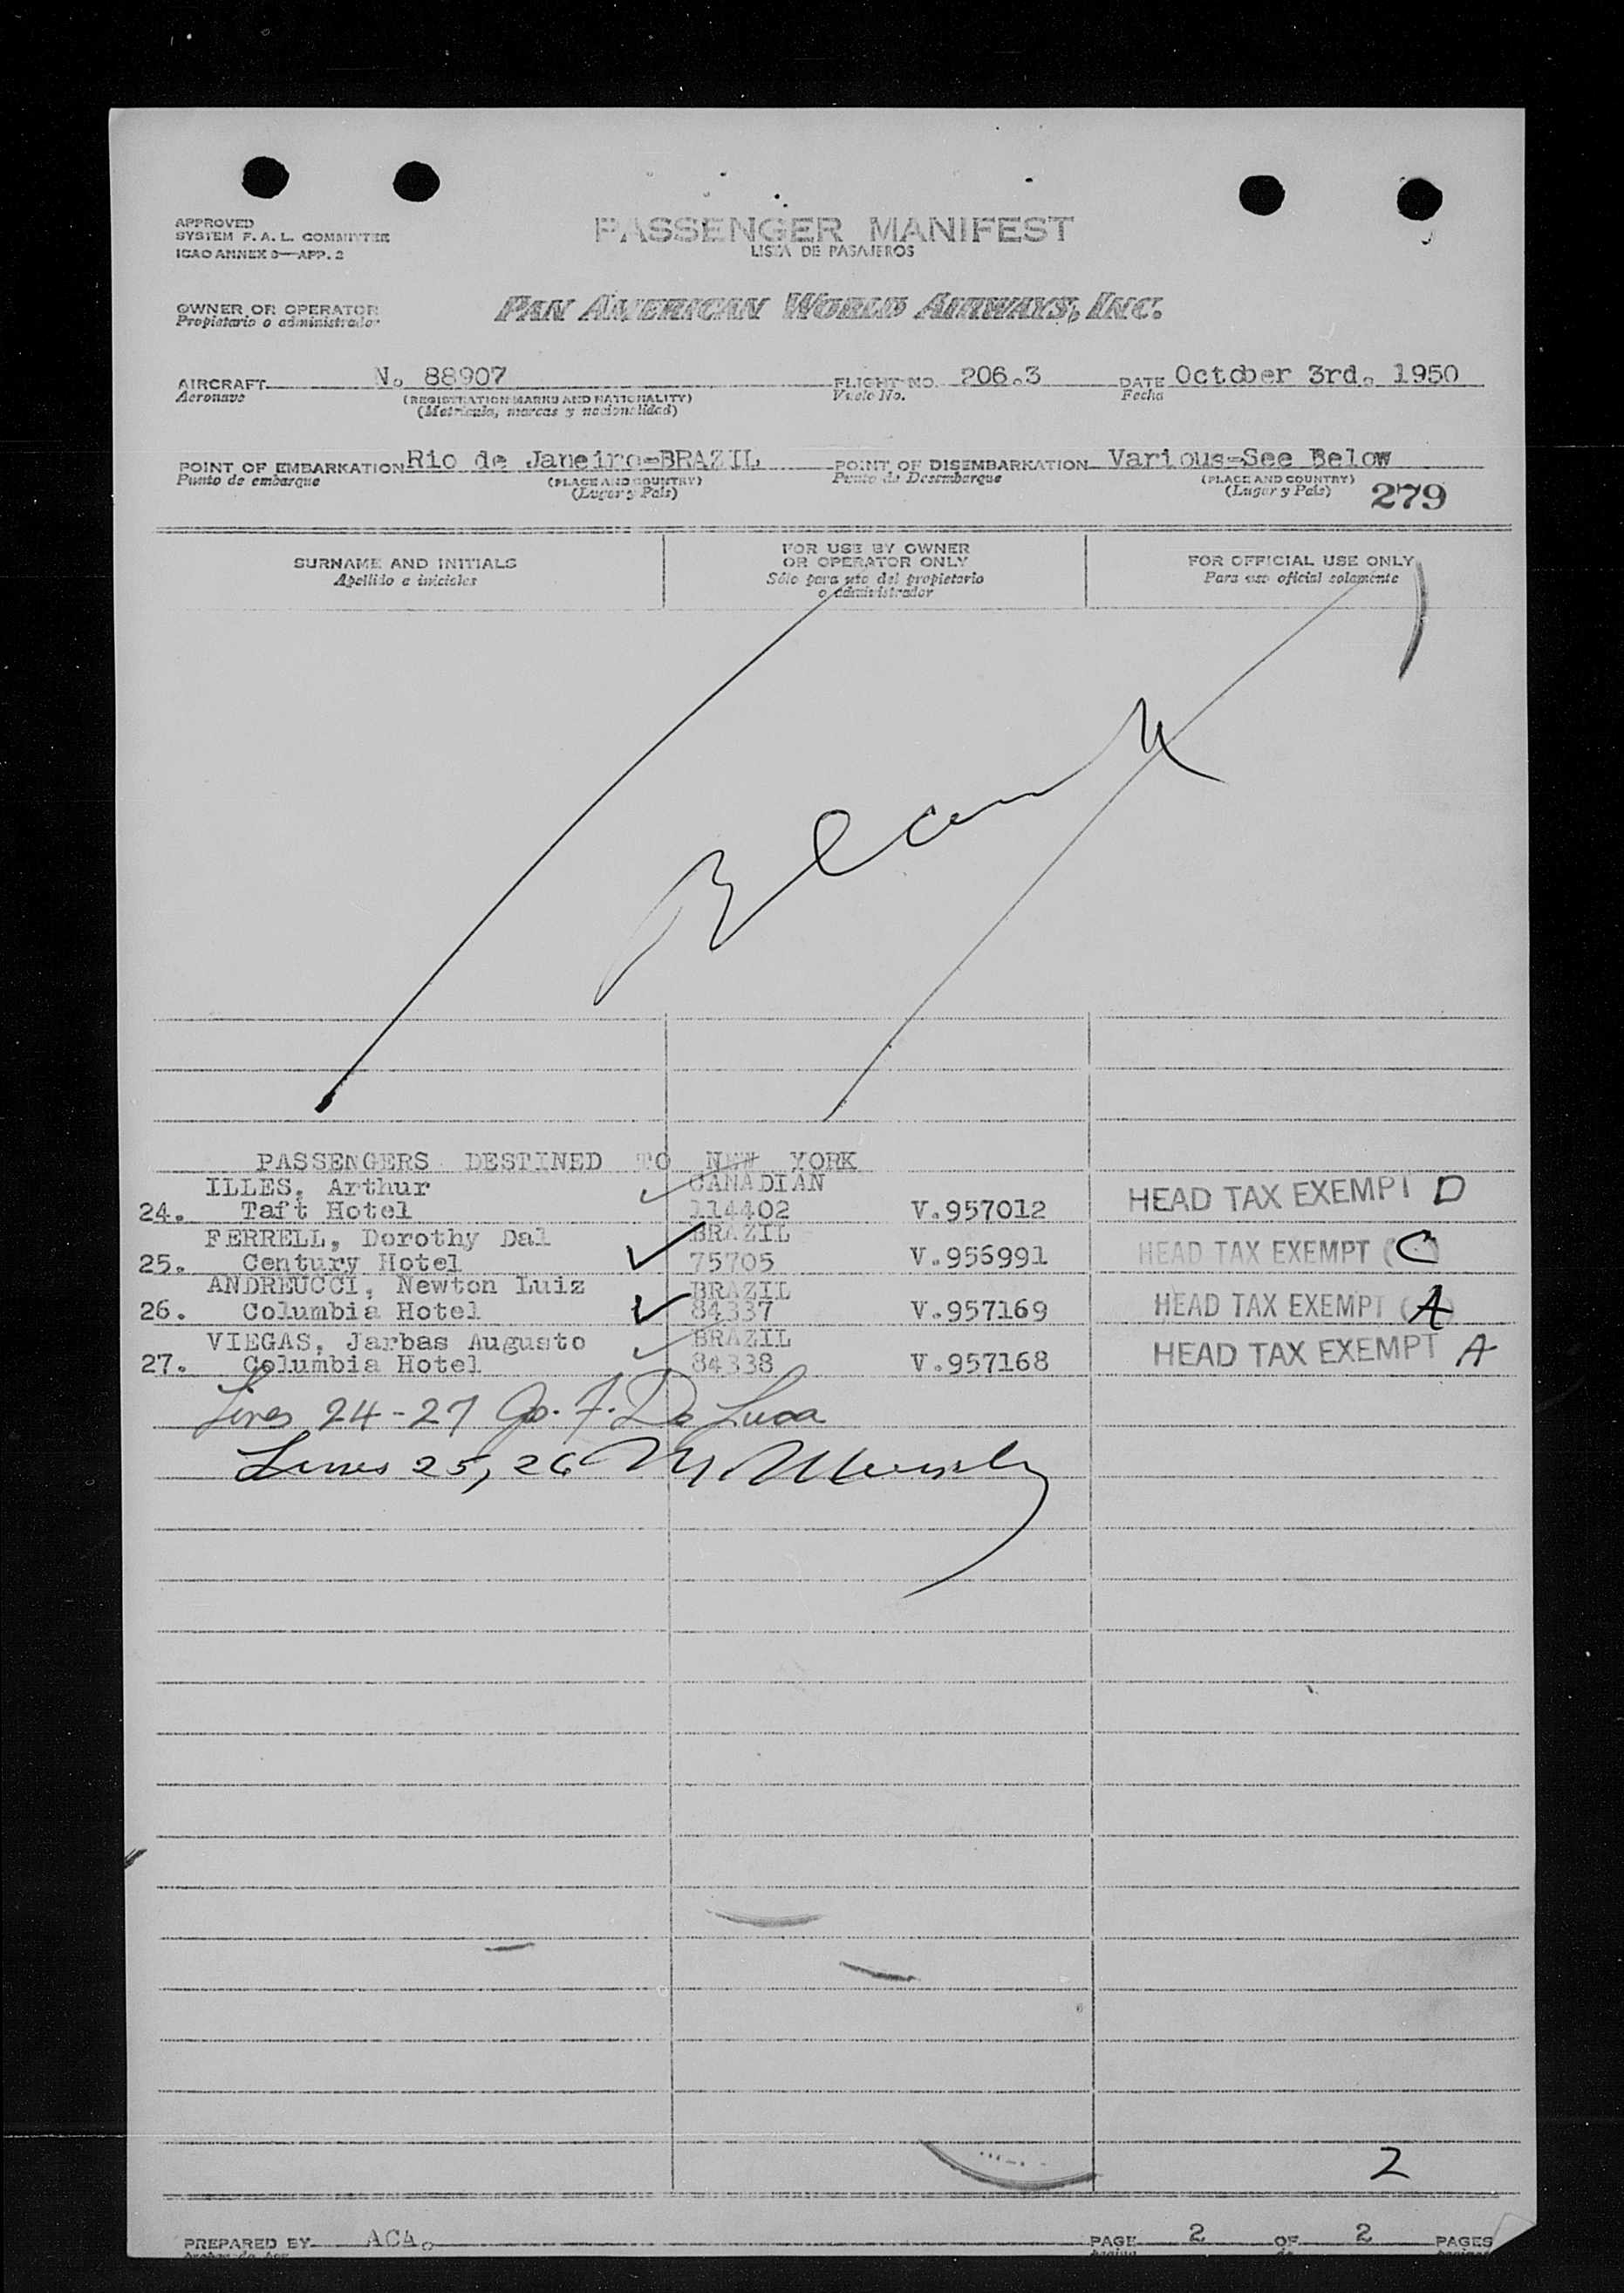 APPROVED
SYSTEM F. A. L. COMMITTEE
ICAO ANNEX 9—APP. 2
PASSENGER MANIFEST
LISTA DE PASAJEROS
OWNER OR OPERATOR
Propietario o administrador
PAN AMERICAN WORLD AIRWAYS, INC.
AIRCRAFT N. 88907 FLIGHT NO. 206.3 DATE October 3rd. 1950
Aeronave (REGISTRATION MARKS AND NATIONALITY) Vuelo No. Fecha
(Matrícula, marcas y nacionalidad)
POINT OF EMBARKATION Rio de Janeiro-BRAZIL POINT OF DISEMBARKATION Various-See Below
Punto de embarque (PLACE AND COUNTRY) Punto de Desembarque (PLACE AND COUNTRY)
(Lugar y País) (Lugar y País) 279
SURNAME AND INITIALS
Apellido e iniciales
FOR USE BY OWNER
OR OPERATOR ONLY
Sólo para uso del propietario
o administrador
FOR OFFICIAL USE ONLY
Para uso oficial solamente
PASSENGERS DESTINED TO NEW YORK
ILLES, Arthur CANADIAN
24. Taft Hotel 114402 V.957012 HEAD TAX EXEMPT D
FERRELL, Dorothy Dal BRAZIL
25. Century Hotel 75705 V.956991 HEAD TAX EXEMPT (C)
ANDREUCCI, Newton Luiz BRAZIL
26. Columbia Hotel 84337 V.957169 HEAD TAX EXEMPT (A)
VIEGAS, Jarbas Augusto BRAZIL
27. Columbia Hotel 84338 V.957168 HEAD TAX EXEMPT A
Lines 24-27 F. De Luca
Lines 25, 26
2
PREPARED BY AC4. PAGE 2 OF 2 PAGES